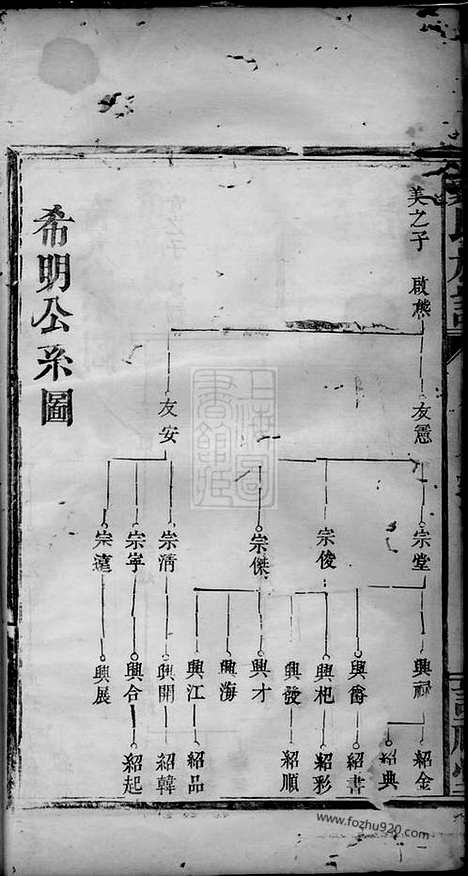 美之子 啟燕
友憲
友安
宗堂
宗俊
宗傑
宗清
宗寧
宗達
興爵
興杞
興發
興才
興海
興江
興開
興合
興展
紹金
紹典
紹書
紹彩
紹順
紹品
紹韓
紹起
希明公系圖
上海圖書館藏
www.fozhu920.com